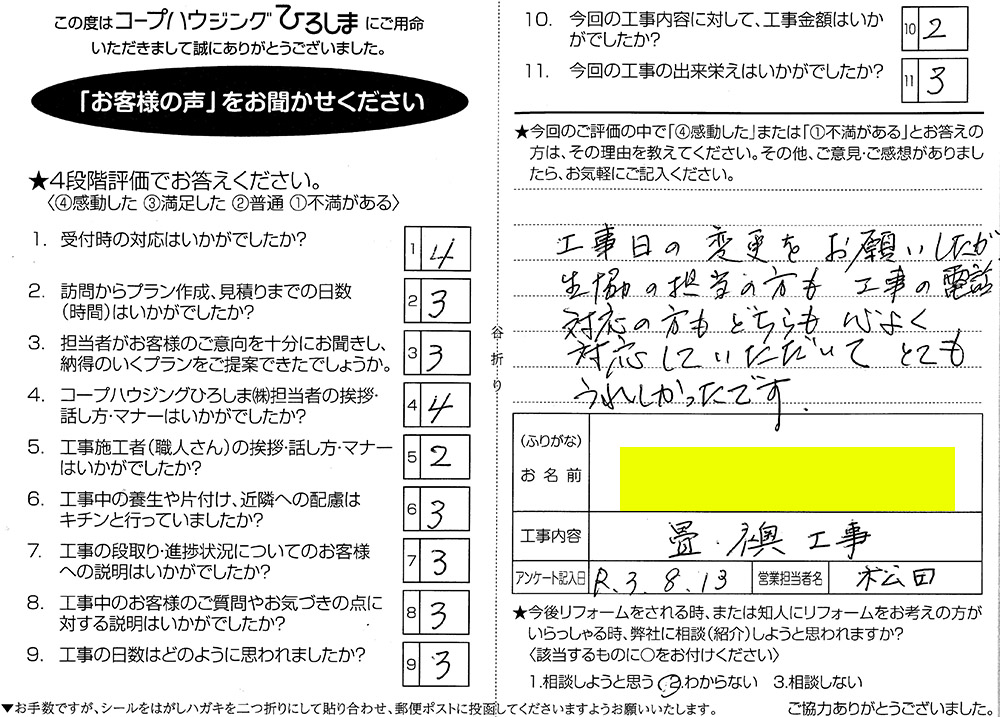 この度はコープハウジングひろしまにご用命
いただきまして誠にありがとうございました。
「お客様の声」をお聞かせください
★4段階評価でお答えください。
〈④感動した ③満足した ②普通 ①不満がある〉
1. 受付時の対応はいかがでしたか?
1 4
2. 訪問からプラン作成、見積りまでの日数
(時間)はいかがでしたか?
2 3
3. 担当者がお客様のご意向を十分にお聞きし、
納得のいくプランをご提案できたでしょうか。
3 3
4. コープハウジングひろしま㈱担当者の挨拶・
話し方・マナーはいかがでしたか?
4 4
5. 工事施工者(職人さん)の挨拶・話し方・マナー
はいかがでしたか?
5 2
6. 工事中の養生や片付け、近隣への配慮は
キチンと行っていましたか?
6 3
7. 工事の段取り・進捗状況についてのお客様
への説明はいかがでしたか?
7 3
8. 工事中のお客様のご質問やお気づきの点に
対する説明はいかがでしたか?
8 3
9. 工事の日数はどのように思われましたか?
9 3
谷折り
10. 今回の工事内容に対して、工事金額はいか
がでしたか?
10 2
11. 今回の工事の出来栄えはいかがでしたか?
11 3
★今回のご評価の中で「④感動した」または「①不満がある」とお答えの
方は、その理由を教えてください。その他、ご意見・ご感想がありまし
たら、お気軽にご記入ください。
工事日の変更をお願いしたが、
生協の担当の方も 工事の電話
対応の方もどちらも心よく
対応していただいて とても
うれしかったです.
(ふりがな)
お名前
工事内容 畳・襖工事
アンケート記入日 R.3.8.13 営業担当者名 松田
★今後リフォームをされる時、または知人にリフォームをお考えの方が
いらっしゃる時、弊社に相談(紹介)しようと思われますか?
〈該当するものに○をお付けください〉
1.相談しようと思う 2.わからない 3.相談しない
▼お手数ですが、シールをはがしハガキを二つ折りにして貼り合わせ、郵便ポストに投函してくださいますようお願いいたします。
ご協力ありがとうございました。